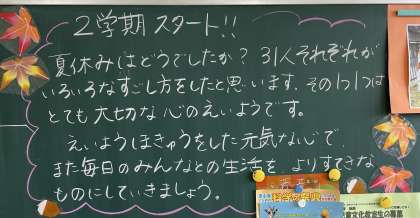 2学期 スタート!!
夏休みはどうでしたか? 31人それぞれが
いろいろなすごし方をしたと思います。その1つ1つは
とても大切な心のえいようです。
えいようほきゅうをした元気な心で、
また毎日のみんなとの生活を よりすてきな
ものにしていきましょう。